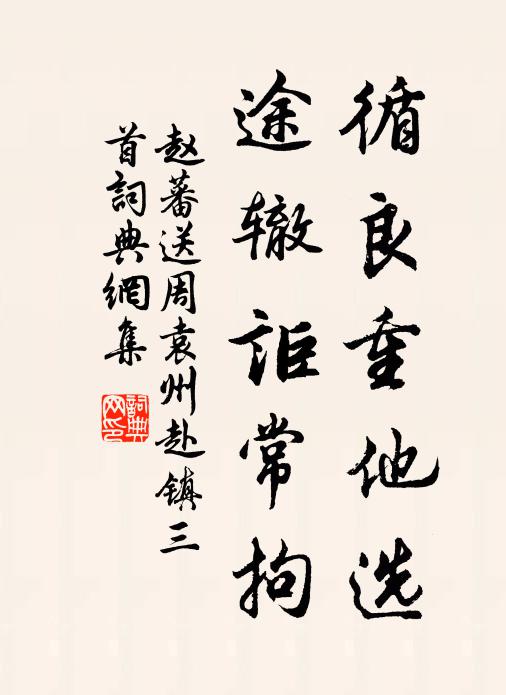 循良重他选
途辙讵常拘
赵蕃送周袁州赴镇三
首詞典網集
詞典
网印